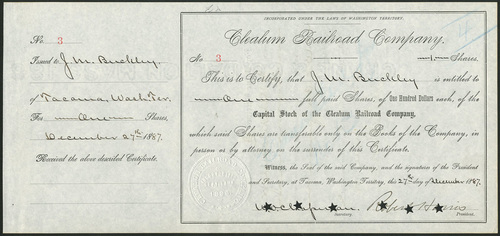 No. 3
Issued to J. M. Buckley.
of Tacoma, Wash. Ter.
For One Shares,
December 27th 1887.
Received the above described Certificate.
INCORPORATED UNDER THE LAWS OF WASHINGTON TERRITORY.
Clealum Railroad Company.
No. 3 1 Shares.
This is to Certify, that J. M. Buckley is entitled to
One full paid Shares, of One Hundred Dollars each, of the
Capital Stock of the Clealum Railroad Company,
which said Shares are transferable only on the Books of the Company, in
person or by attorney on the surrender of this Certificate.
Witness, the Seal of the said Company, and the signatures of the President
and Secretary, at Tacoma, Washington Territory, this 27th day of December 1887.
Chapman Robert Harris
Secretary. President.